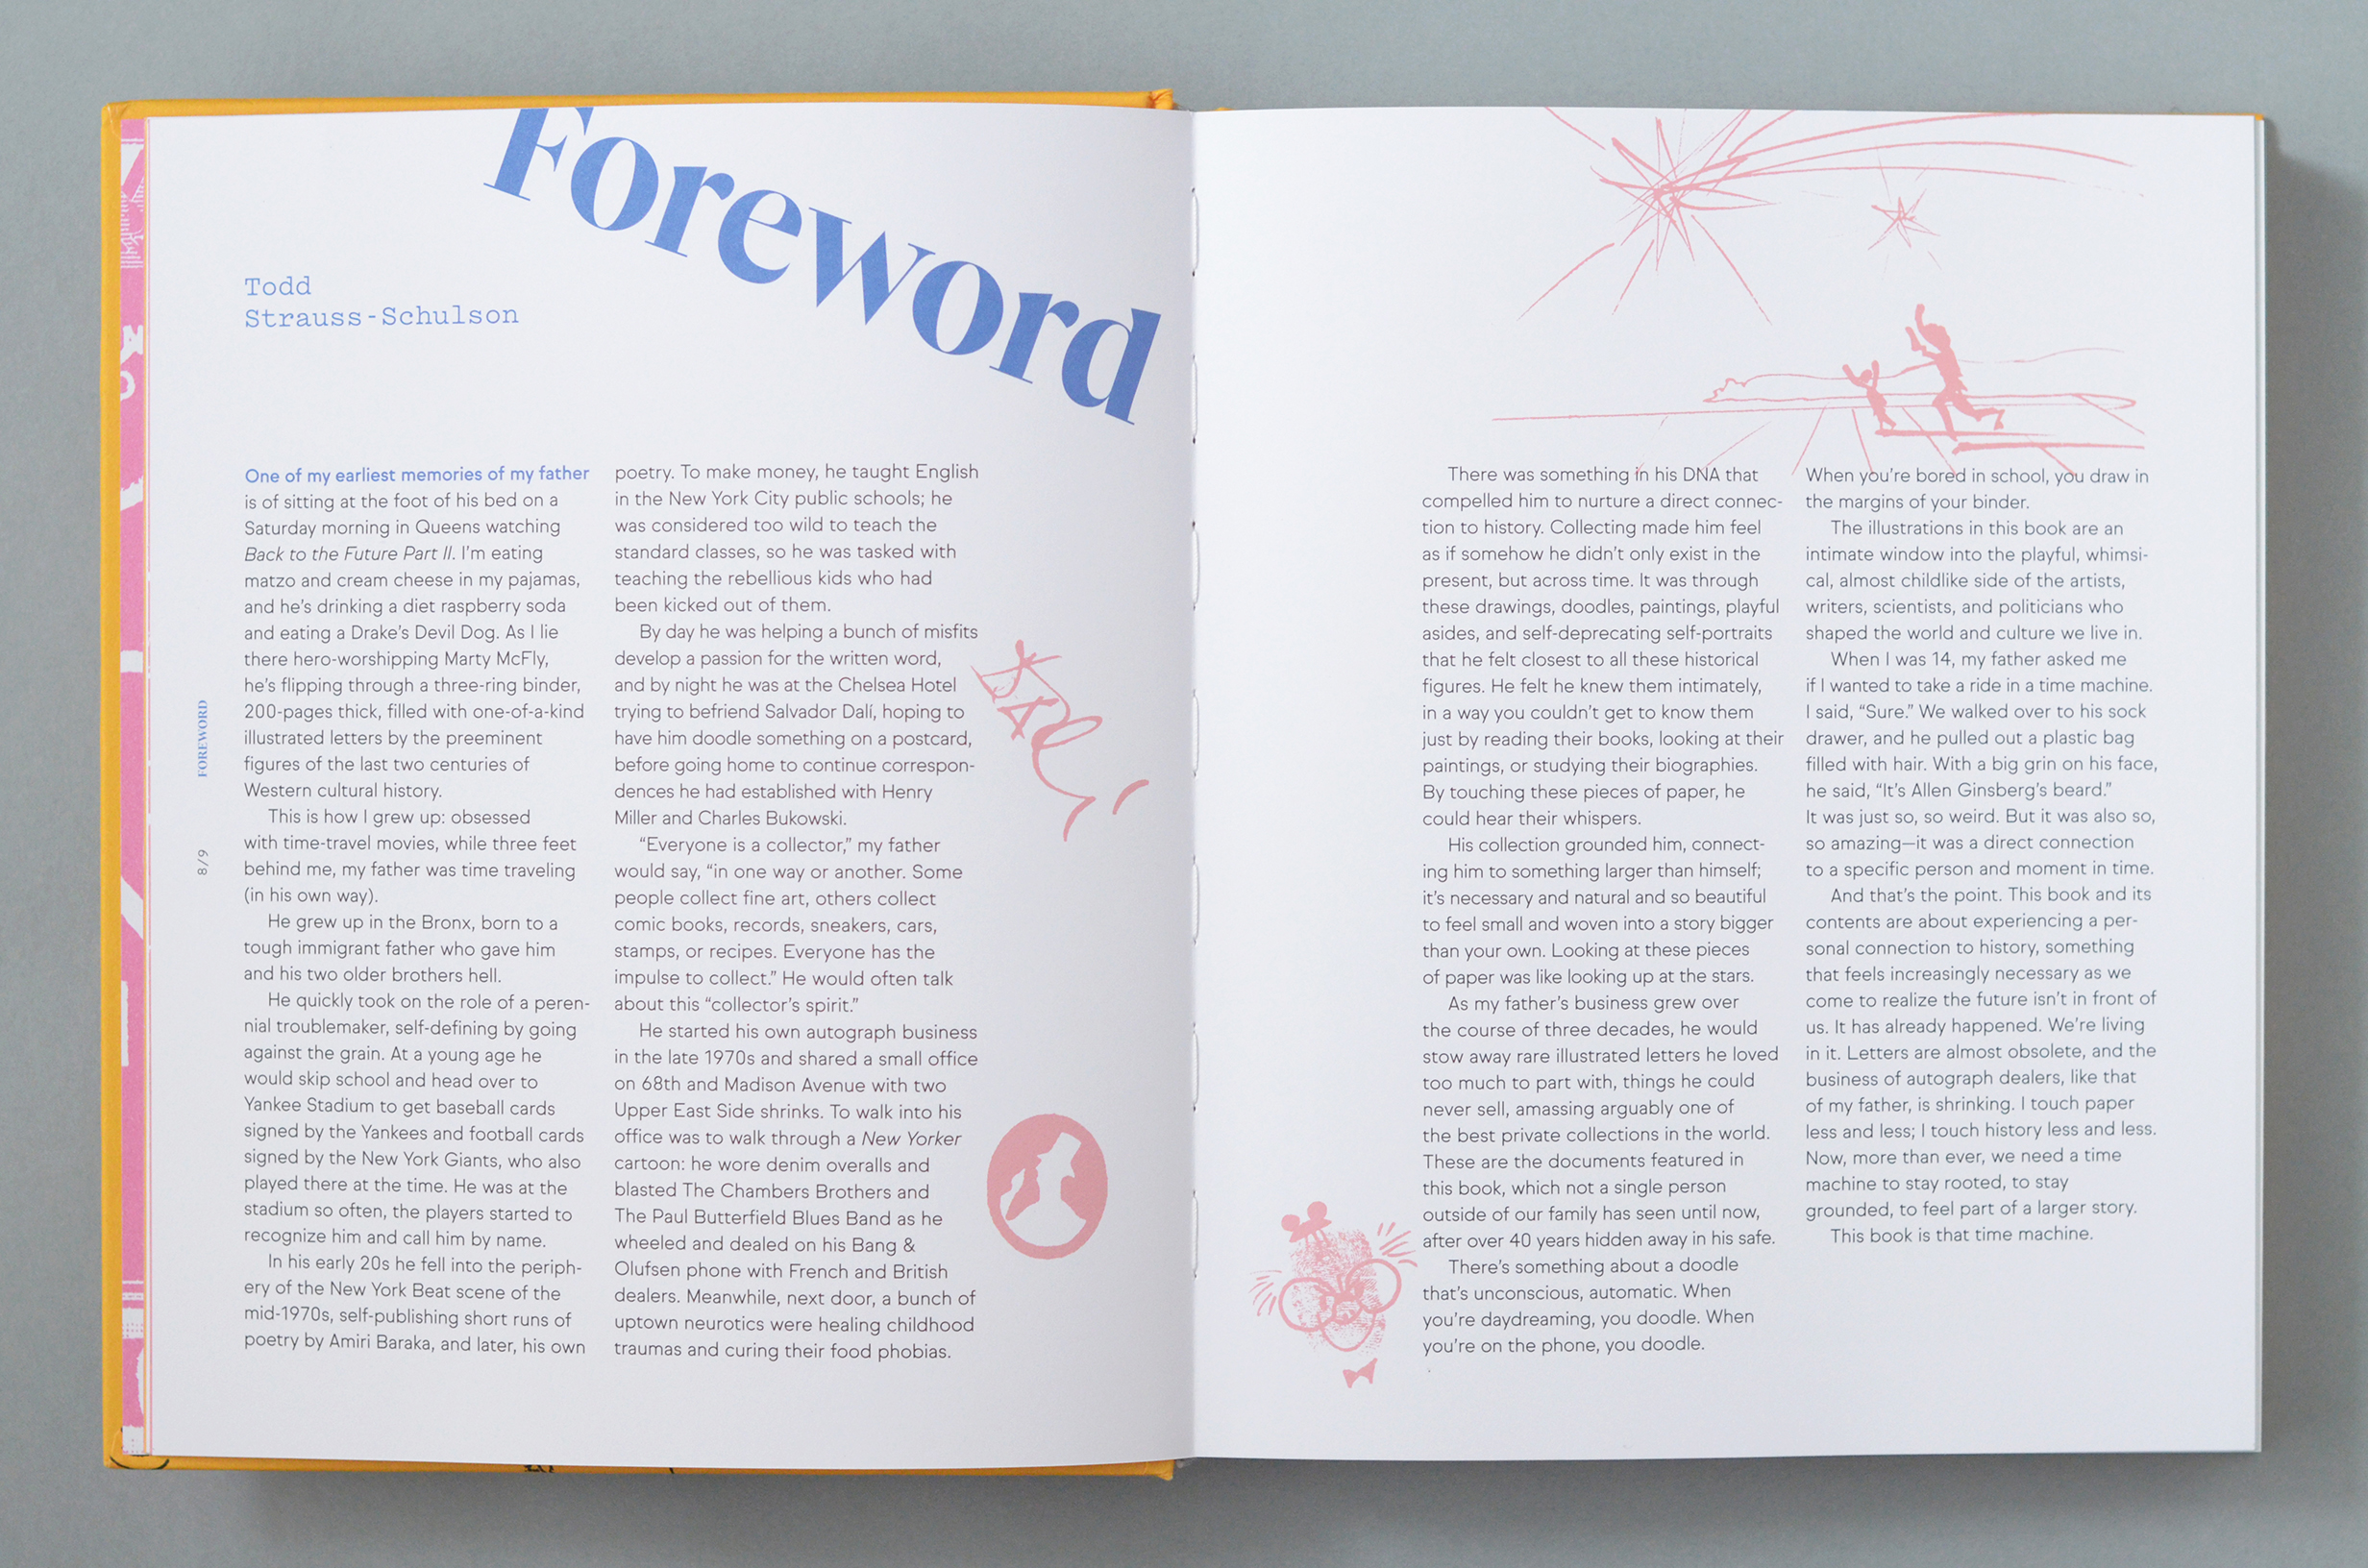 Foreword
Todd
Strauss-Schulson
One of my earliest memories of my father
is of sitting at the foot of his bed on a
Saturday morning in Queens watching
Back to the Future Part II. I'm eating
matzo and cream cheese in my pajamas,
and he's drinking a diet raspberry soda
and eating a Drake's Devil Dog. As I lie
there hero-worshipping Marty McFly,
he's flipping through a three-ring binder,
200-pages thick, filled with one-of-a-kind
illustrated letters by the preeminent
figures of the last two centuries of
Western cultural history.
This is how I grew up: obsessed
with time-travel movies, while three feet
behind me, my father was time traveling
(in his own way).
He grew up in the Bronx, born to a
tough immigrant father who gave him
and his two older brothers hell.
He quickly took on the role of a peren-
nial troublemaker, self-defining by going
against the grain. At a young age he
would skip school and head over to
Yankee Stadium to get baseball cards
signed by the Yankees and football cards
signed by the New York Giants, who also
played there at the time. He was at the
stadium so often, the players started to
recognize him and call him by name.
In his early 20s he fell into the periph-
ery of the New York Beat scene of the
mid-1970s, self-publishing short runs of
poetry by Amiri Baraka, and later, his own
poetry. To make money, he taught English
in the New York City public schools; he
was considered too wild to teach the
standard classes, so he was tasked with
teaching the rebellious kids who had
been kicked out of them.
By day he was helping a bunch of misfits
develop a passion for the written word,
and by night he was at the Chelsea Hotel
trying to befriend Salvador Dalí, hoping to
have him doodle something on a postcard,
before going home to continue correspon-
dences he had established with Henry
Miller and Charles Bukowski.
"Everyone is a collector," my father
would say, "in one way or another. Some
people collect fine art, others collect
comic books, records, sneakers, cars,
stamps, or recipes. Everyone has the
impulse to collect." He would often talk
about this "collector's spirit."
He started his own autograph business
in the late 1970s and shared a small office
on 68th and Madison Avenue with two
Upper East Side shrinks. To walk into his
office was to walk through a New Yorker
cartoon: he wore denim overalls and
blasted The Chambers Brothers and
The Paul Butterfield Blues Band as he
wheeled and dealed on his Bang &
Olufsen phone with French and British
dealers. Meanwhile, next door, a bunch of
uptown neurotics were healing childhood
traumas and curing their food phobias.
FOREWORD
8/9
There was something in his DNA that
compelled him to nurture a direct connec-
tion to history. Collecting made him feel
as if somehow he didn't only exist in the
present, but across time. It was through
these drawings, doodles, paintings, playful
asides, and self-deprecating self-portraits
that he felt closest to all these historical
figures. He felt he knew them intimately,
in a way you couldn't get to know them
just by reading their books, looking at their
paintings, or studying their biographies.
By touching these pieces of paper, he
could hear their whispers.
His collection grounded him, connect-
ing him to something larger than himself;
it's necessary and natural and so beautiful
to feel small and woven into a story bigger
than your own. Looking at these pieces
of paper was like looking up at the stars.
As my father's business grew over
the course of three decades, he would
stow away rare illustrated letters he loved
too much to part with, things he could
never sell, amassing arguably one of
the best private collections in the world.
These are the documents featured in
this book, which not a single person
outside of our family has seen until now,
after over 40 years hidden away in his safe.
There's something about a doodle
that's unconscious, automatic. When
you're daydreaming, you doodle. When
you're on the phone, you doodle.
When you're bored in school, you draw in
the margins of your binder.
The illustrations in this book are an
intimate window into the playful, whimsi-
cal, almost childlike side of the artists,
writers, scientists, and politicians who
shaped the world and culture we live in.
When I was 14, my father asked me
if I wanted to take a ride in a time machine.
I said, "Sure." We walked over to his sock
drawer, and he pulled out a plastic bag
filled with hair. With a big grin on his face,
he said, "It's Allen Ginsberg's beard."
It was just so, so weird. But it was also so,
so amazing—it was a direct connection
to a specific person and moment in time.
And that's the point. This book and its
contents are about experiencing a per-
sonal connection to history, something
that feels increasingly necessary as we
come to realize the future isn't in front of
us. It has already happened. We're living
in it. Letters are almost obsolete, and the
business of autograph dealers, like that
of my father, is shrinking. I touch paper
less and less; I touch history less and less.
Now, more than ever, we need a time
machine to stay rooted, to stay
grounded, to feel part of a larger story.
This book is that time machine.